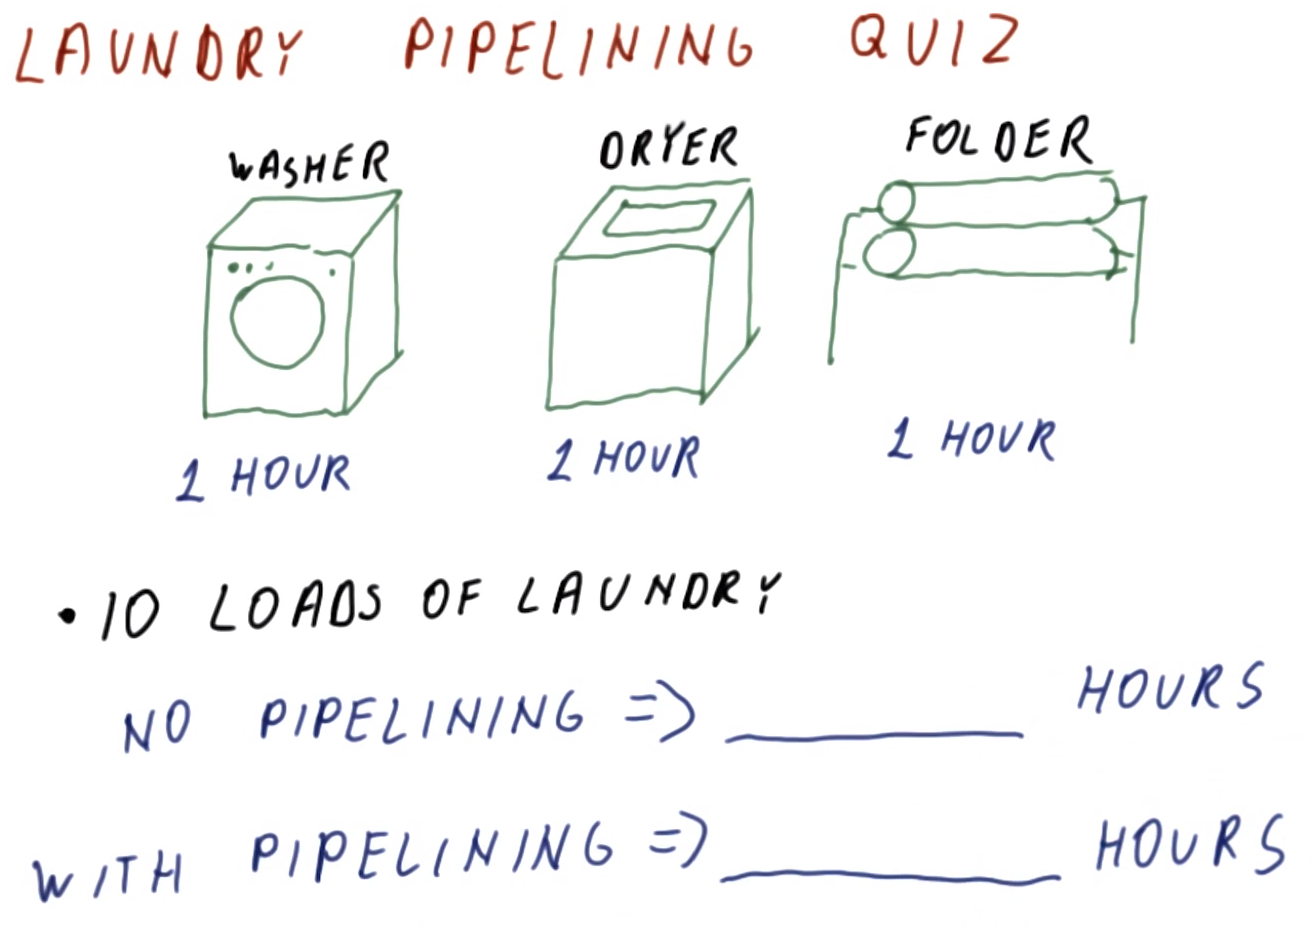 LAUNDRY PIPELINING QUIZ
WASHER DRYER FOLDER
1 HOUR 1 HOUR 1 HOUR
• 10 LOADS OF LAUNDRY
NO PIPELINING => ________ HOURS
WITH PIPELINING => ________ HOURS